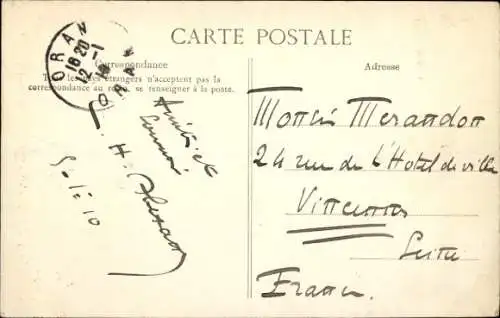 CARTE POSTALE
ORAN
18 20
12 -1
10
ORAN
Correspondance
les pays étrangers n'acceptent pas la
correspondance au recto, se renseigner à la poste.
Adresse
Amitiés et
H.
9-1-10
Monsieur Merandon
24 rue de l'Hotel de ville
Vincennes
Seine
France.